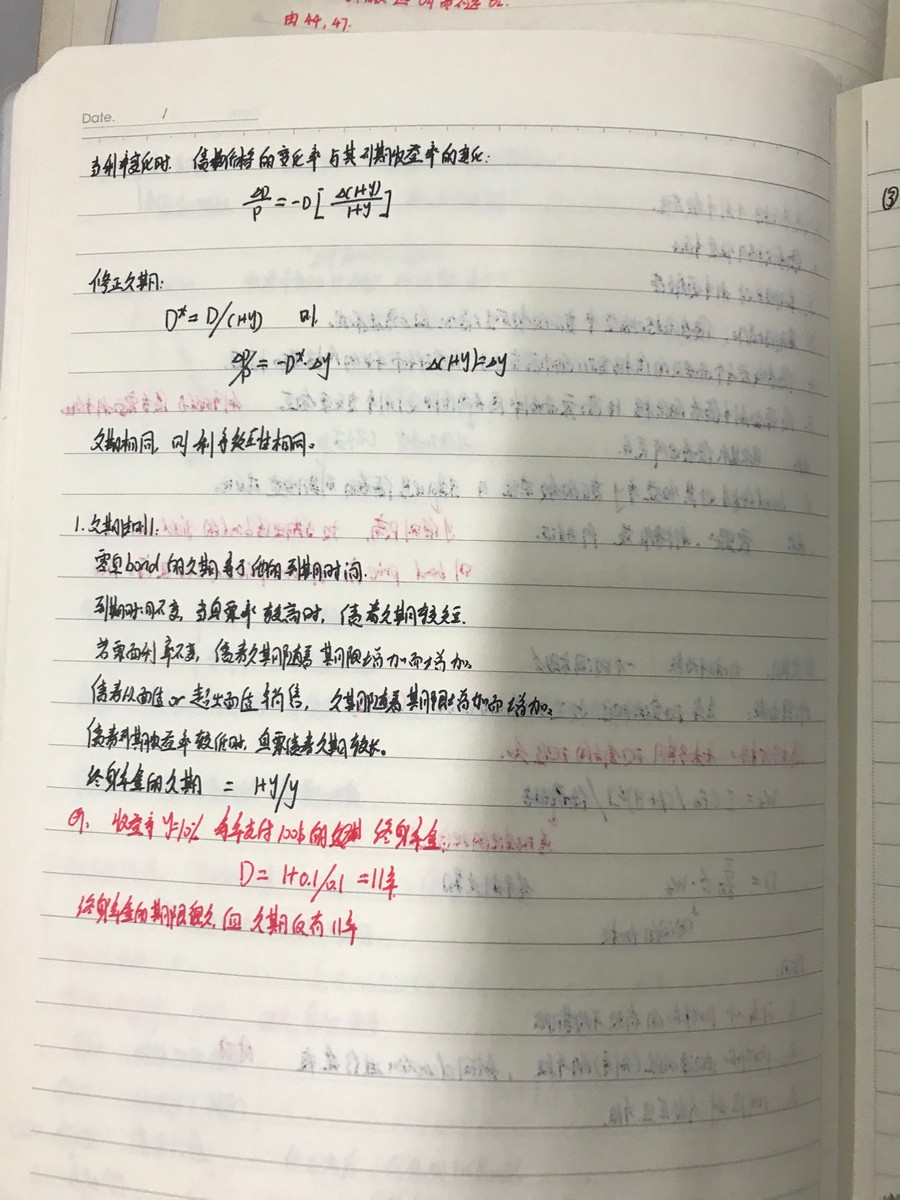 由44，47.
Date. /
当利率变化时. 债券价格的变化率与其到期收益率的变化:
ΔP/P = -D[Δ(1+y)/1+y]
修正久期:
D* = D/(1+y) 则.
ΔP/P = -D*·Δy Δ(1+y)=Δy
久期相同, 则利率敏感性相同。
1. 久期法则:
零息bond的久期等于他的到期时间.
到期时间不变, 当息票率较高时, 债券久期较短.
若票面利率不变, 债券久期随着期限增加而增加。
债券以面值or超出面值销售, 久期随着期限增加而增加。
债券到期收益率较低时, 息票债券久期较长。
终身年金的久期 = 1+y/y
例. 收益率y=10% 每年支付100$的 终身年金,
D = 1+0.1/0.1 = 11年
终身年金的期限很久, 但久期仅有11年
③